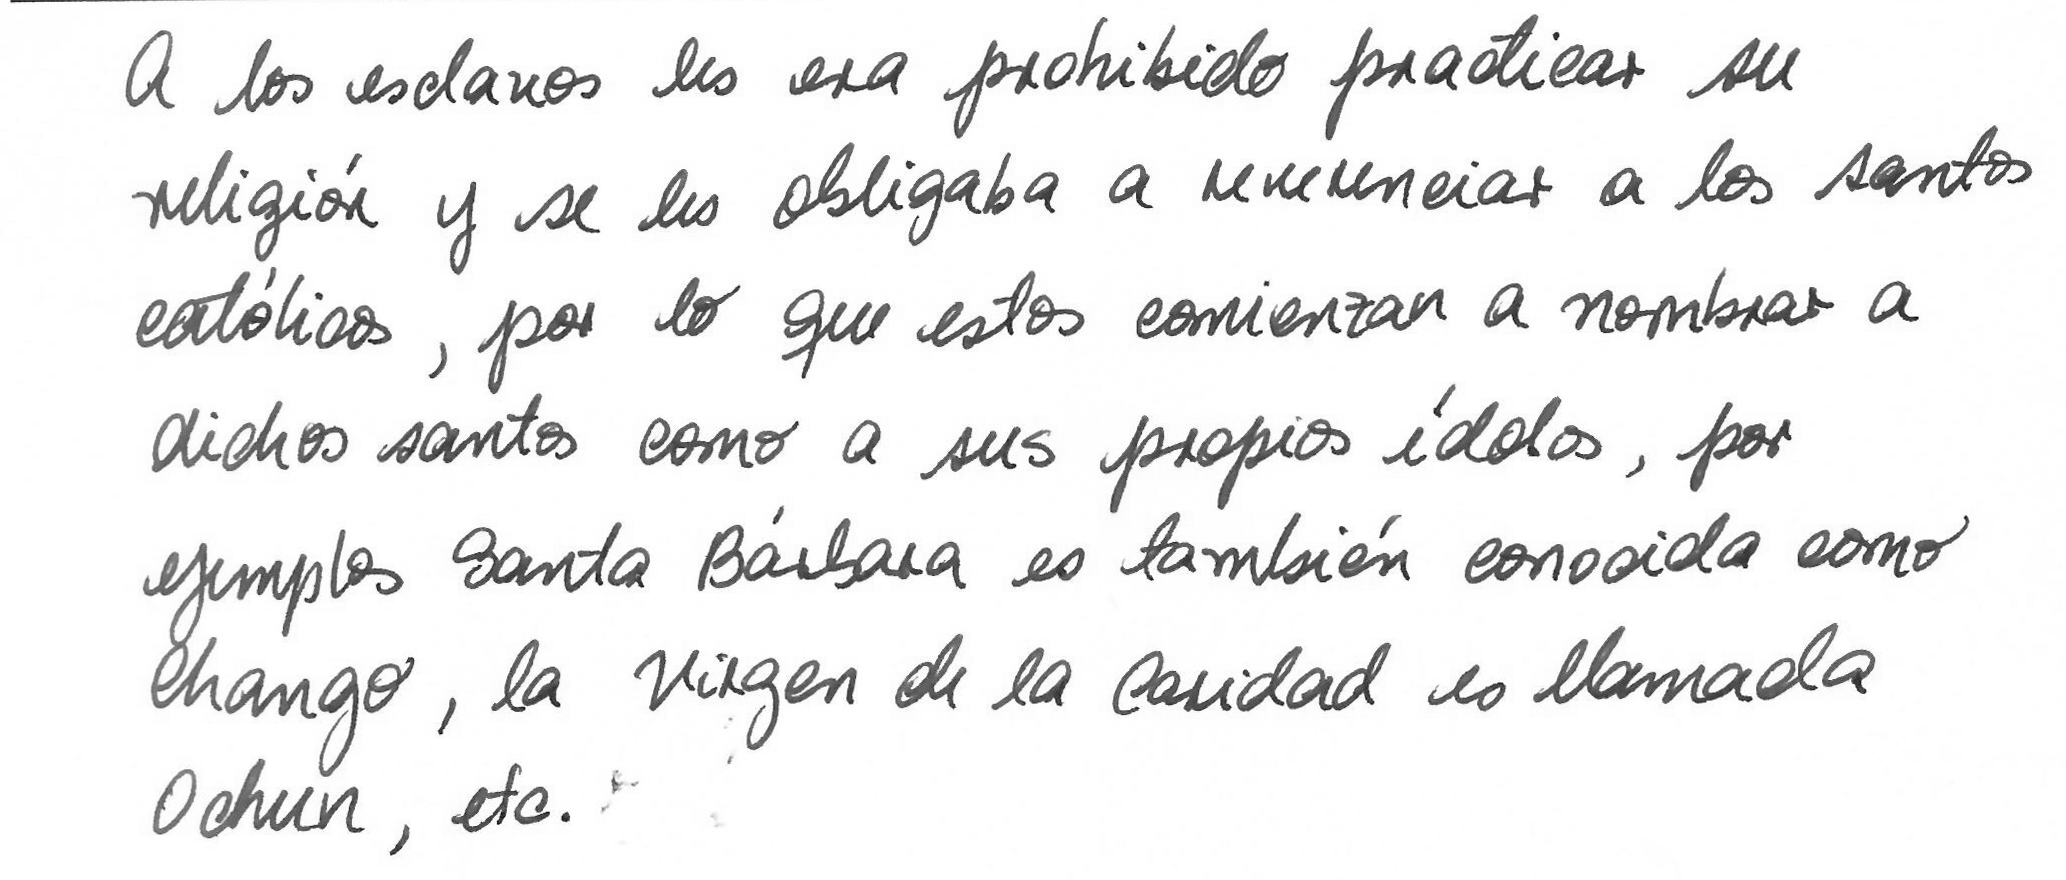 A los esclavos les era prohibido practicar su
religión y se les obligaba a reverenciar a los santos
católicos, por lo que estos comienzan a nombrar a
dichos santos como a sus propios ídolos, por
ejemplos Santa Bárbara es también conocida como
Chango, la Virgen de la Caridad es llamada
Ochun, etc.